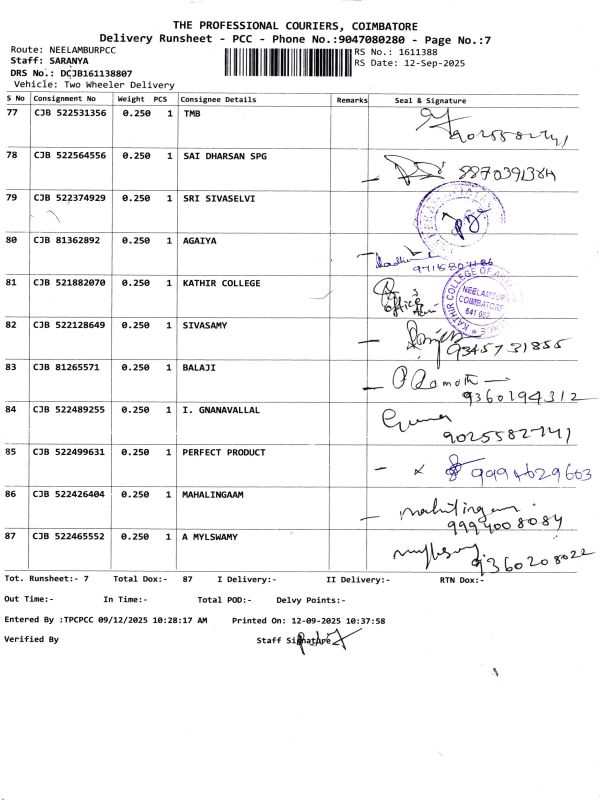 THE PROFESSIONAL COURIERS, COIMBATORE
Delivery Runsheet - PCC - Phone No.:9047080280 - Page No.:7
Route: NEELAMBURPCC RS No.: 1611388
Staff: SARANYA RS Date: 12-Sep-2025
DRS No.: DCJB161138807
Vehicle: Two Wheeler Delivery
S No Consignment No Weight PCS Consignee Details Remarks Seal & Signature
77 CJB 522531356 0.250 1 TMB
9025582741
78 CJB 522564556 0.250 1 SAI DHARSAN SPG
79 CJB 522374929 0.250 1 SRI SIVASELVI
80 CJB 81362892 0.250 1 AGAIYA
9715807186
81 CJB 521882070 0.250 1 KATHIR COLLEGE
office
KATHIR COLLEGE OF
NEELAMBUR
COIMBATORE
641 062
82 CJB 522128649 0.250 1 SIVASAMY
9345731855
83 CJB 81265571 0.250 1 BALAJI
9360194312
84 CJB 522489255 0.250 1 I. GNANAVALLAL
9025582741
85 CJB 522499631 0.250 1 PERFECT PRODUCT
9994629663
86 CJB 522426404 0.250 1 MAHALINGAAM
mahalingam
9994008084
87 CJB 522465552 0.250 1 A MYLSWAMY
9360208022
Tot. Runsheet:- 7 Total Dox:- 87 I Delivery:- II Delivery:- RTN Dox:-
Out Time:- In Time:- Total POD:- Delvy Points:-
Entered By :TPCPCC 09/12/2025 10:28:17 AM Printed On: 12-09-2025 10:37:58
Verified By Staff Signature